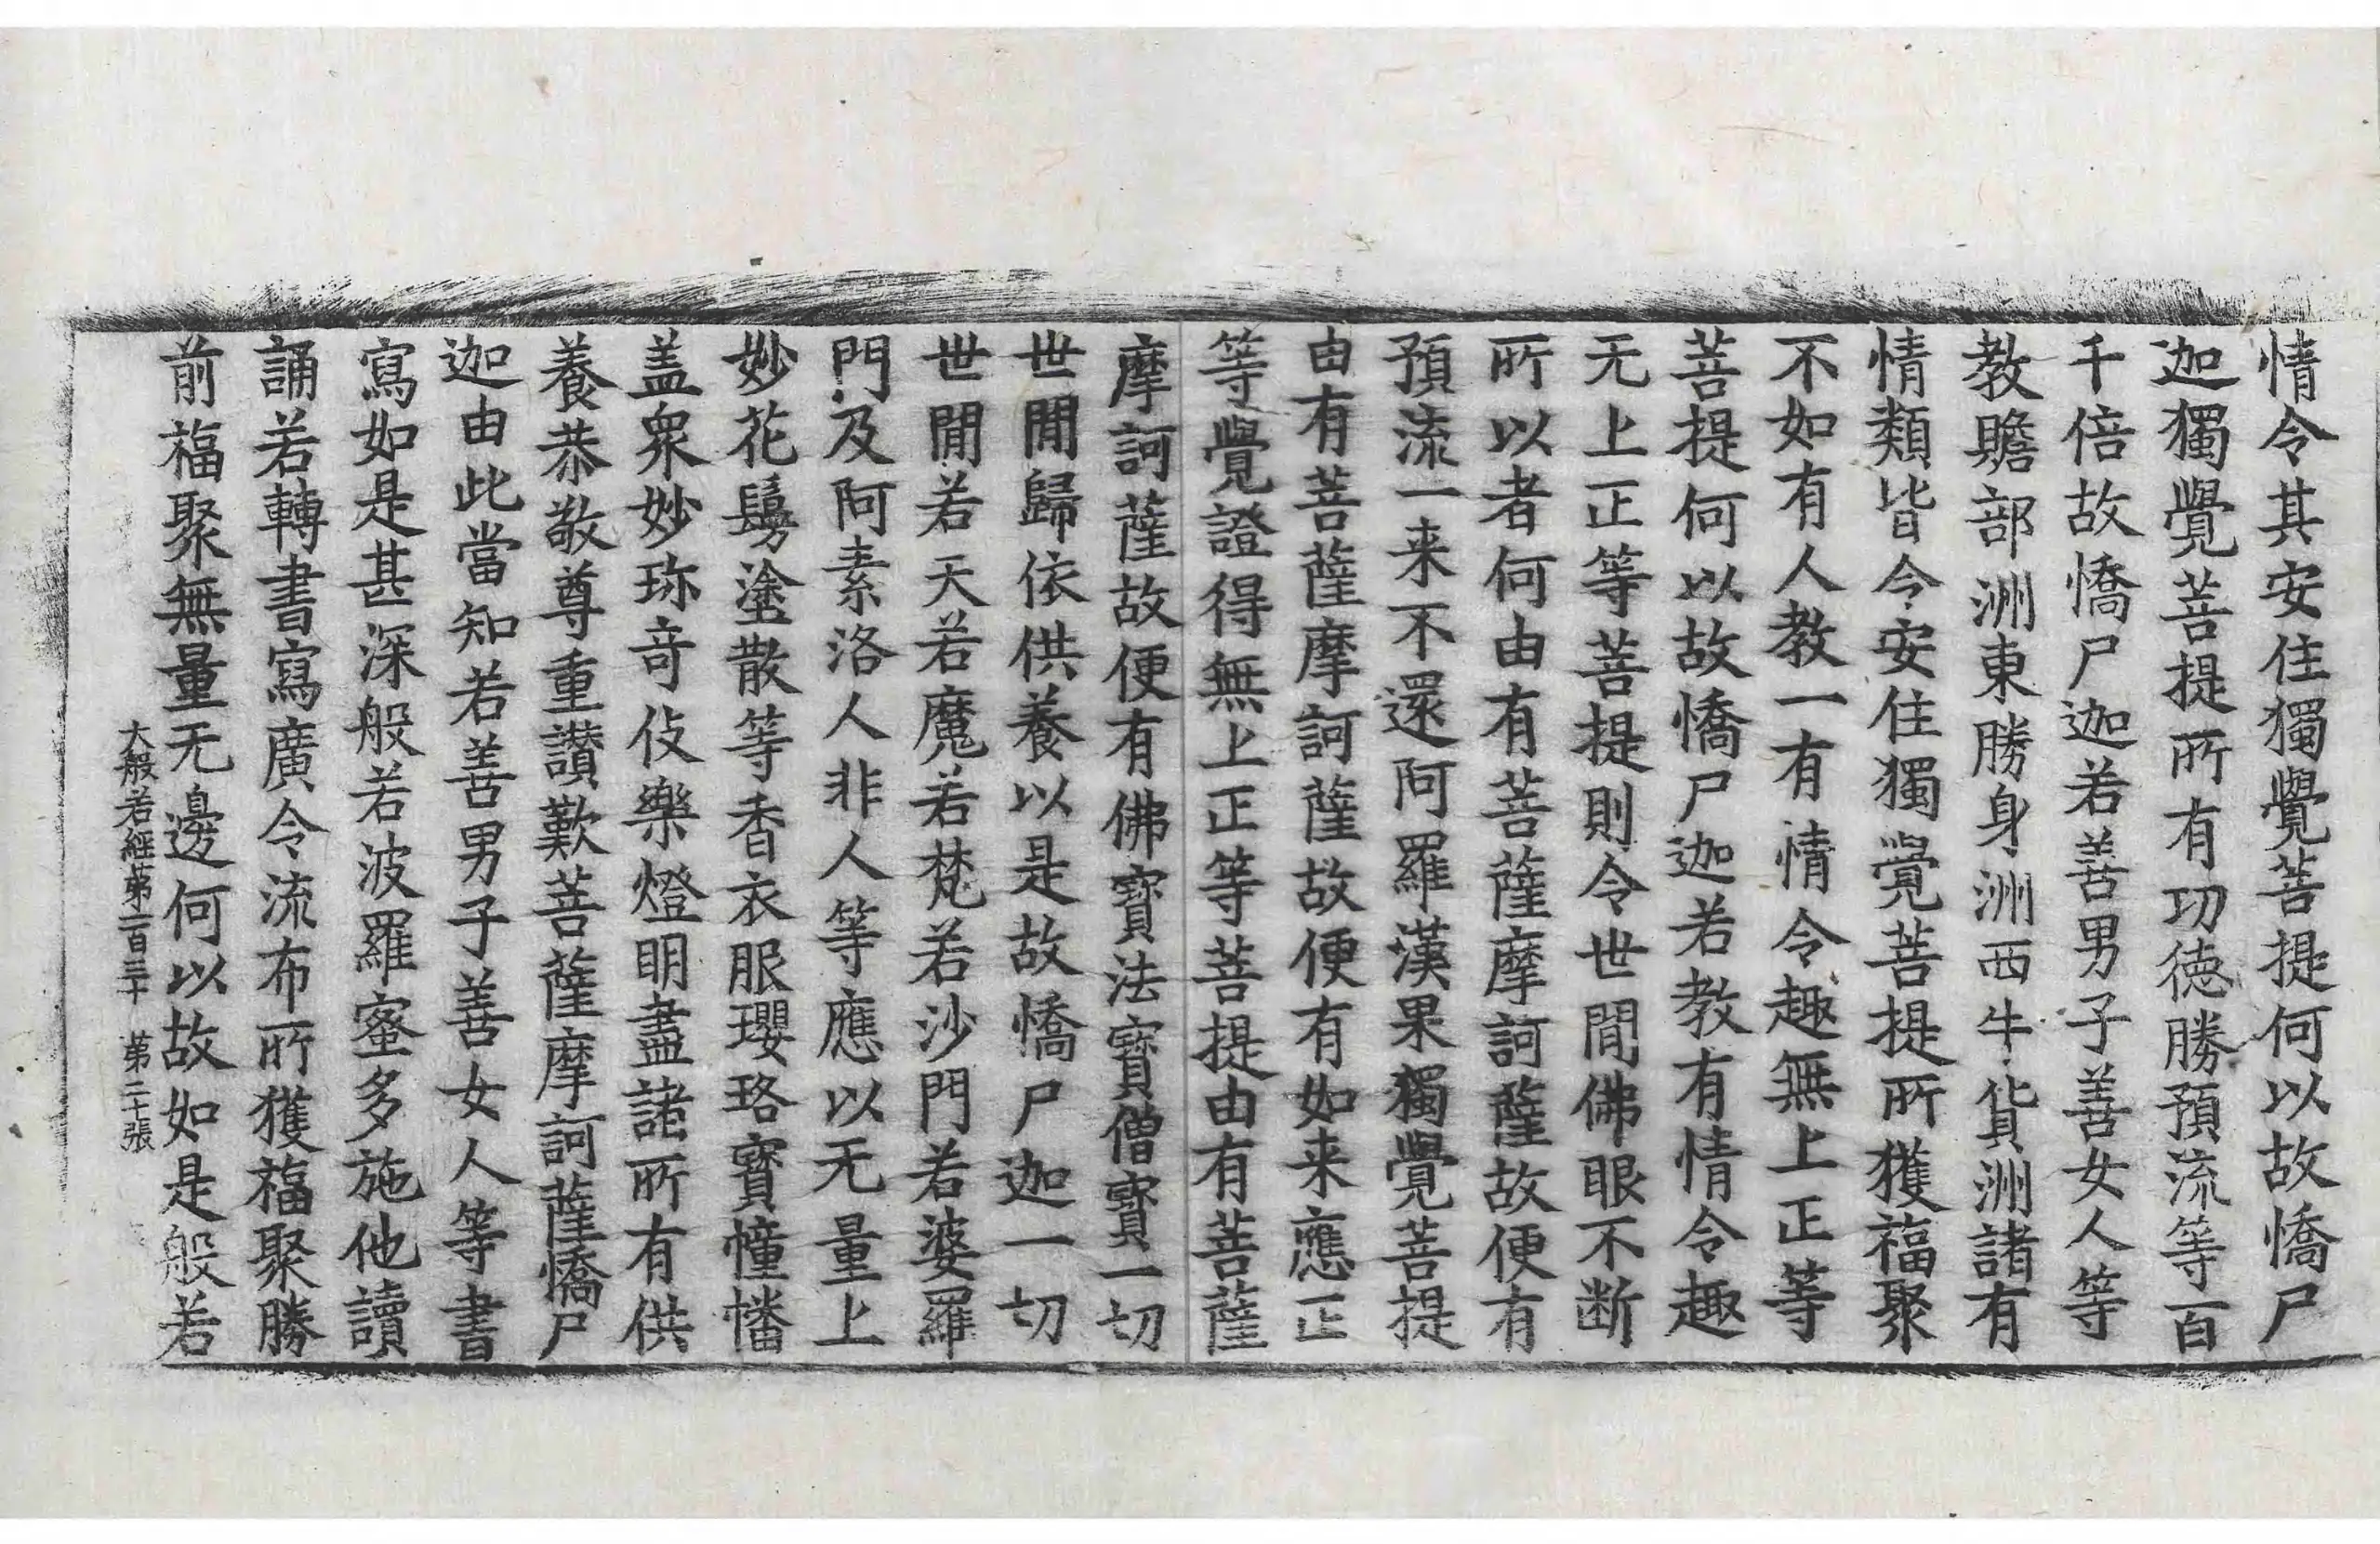 情令其安住獨覺菩提何以故憍尸
迦獨覺菩提所有功德勝預流等百
千倍故憍尸迦若善男子善女人等
教贍部洲東勝身洲西牛貨洲諸有
情類皆令安住獨覺菩提所獲福聚
不如有人教一有情令趣無上正等
菩提何以故憍尸迦若教有情令趣
无上正等菩提則令世間佛眼不断
所以者何由有菩薩摩訶薩故便有
預流一来不還阿羅漢果獨覺菩提
由有菩薩摩訶薩故便有如来應正
等覺證得無上正等菩提由有菩薩
摩訶薩故便有佛寶法寶僧寶一切
世閒歸依供養以是故憍尸迦一切
世閒若天若魔若梵若沙門若婆羅
門及阿素洛人非人等應以无量上
妙花鬘塗散等香衣服瓔珞寶幢幡
盖衆妙珎竒伎樂燈明盡諸所有供
養恭敬尊重讃歎菩薩摩訶薩憍尸
迦由此當知若善男子善女人等書
寫如是甚深般若波羅蜜多施他讀
誦若轉書寫廣令流布所獲福聚勝
前福聚無量无邊何以故如是般若
大般若經苐一百三十　苐二十張